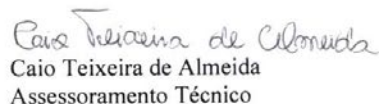 Caio Teixeira de Almeida
Caio Teixeira de Almeida
Assessoramento Técnico